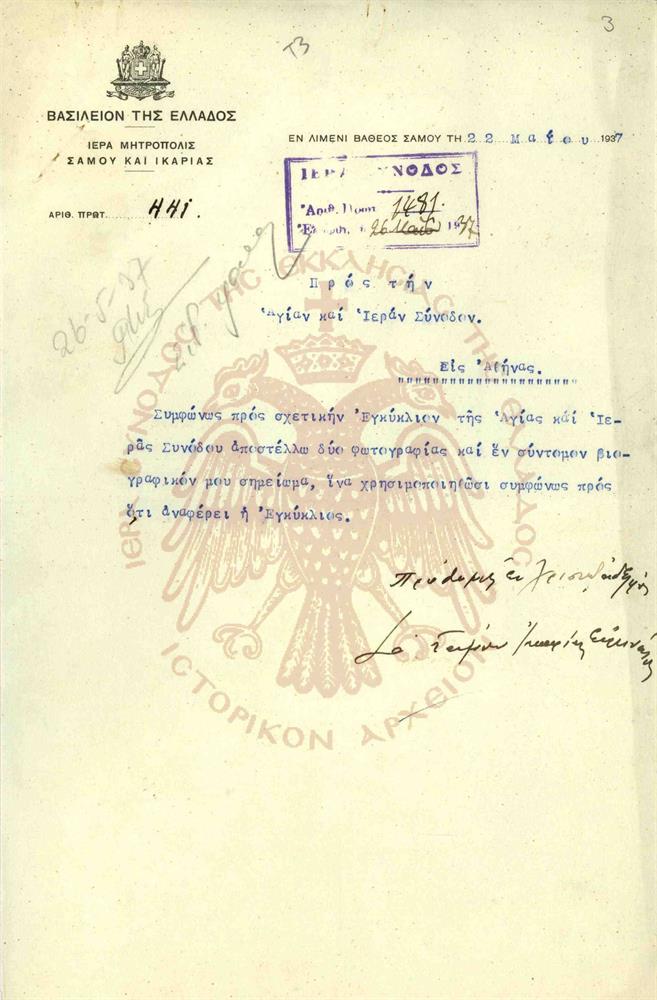 ΤΒ
3
ΒΑΣΙΛΕΙΟΝ ΤΗΣ ΕΛΛΑΔΟΣ
ΙΕΡΑ ΜΗΤΡΟΠΟΛΙΣ
ΣΑΜΟΥ ΚΑΙ ΙΚΑΡΙΑΣ
ΑΡΙΘ. ΠΡΩΤ. 441.
ΕΝ ΛΙΜΕΝΙ ΒΑΘΕΟΣ ΣΑΜΟΥ ΤΗ 22 Μαΐου 1937
ΙΕΡΑ ΣΥΝΟΔΟΣ
Ἀριθ. Πρωτ. 1481.
26 Μαΐου 1937
26-5-37
Πρός τήν
Ἁγίαν καί Ἱεράν Σύνοδον.
Εἰς Ἀθήνας.
Συμφώνως πρός σχετικήν Ἐγκύκλιον τῆς Ἁγίας καί Ἱε-
ρᾶς Συνόδου ἀποστέλλω δύο φωτογραφίας καί ἕν σύντομον βιο-
γραφικόν μου σημείωμα, ἵνα χρησιμοποιηθῶσι συμφώνως πρός
ὅτι ἀναφέρει ἡ Ἐγκύκλιος.
Πρόθυμος ἐν Χριστῷ ἀδελφός
Ὁ Σάμου Ἰκαρίας Εἰρηναῖος
ΙΕΡΑ ΣΥΝΟΔΟΣ ΤΗΣ ΕΚΚΛΗΣΙΑΣ ΤΗΣ ΕΛΛΑΔΟΣ
ΙΣΤΟΡΙΚΟΝ ΑΡΧΕΙΟΝ